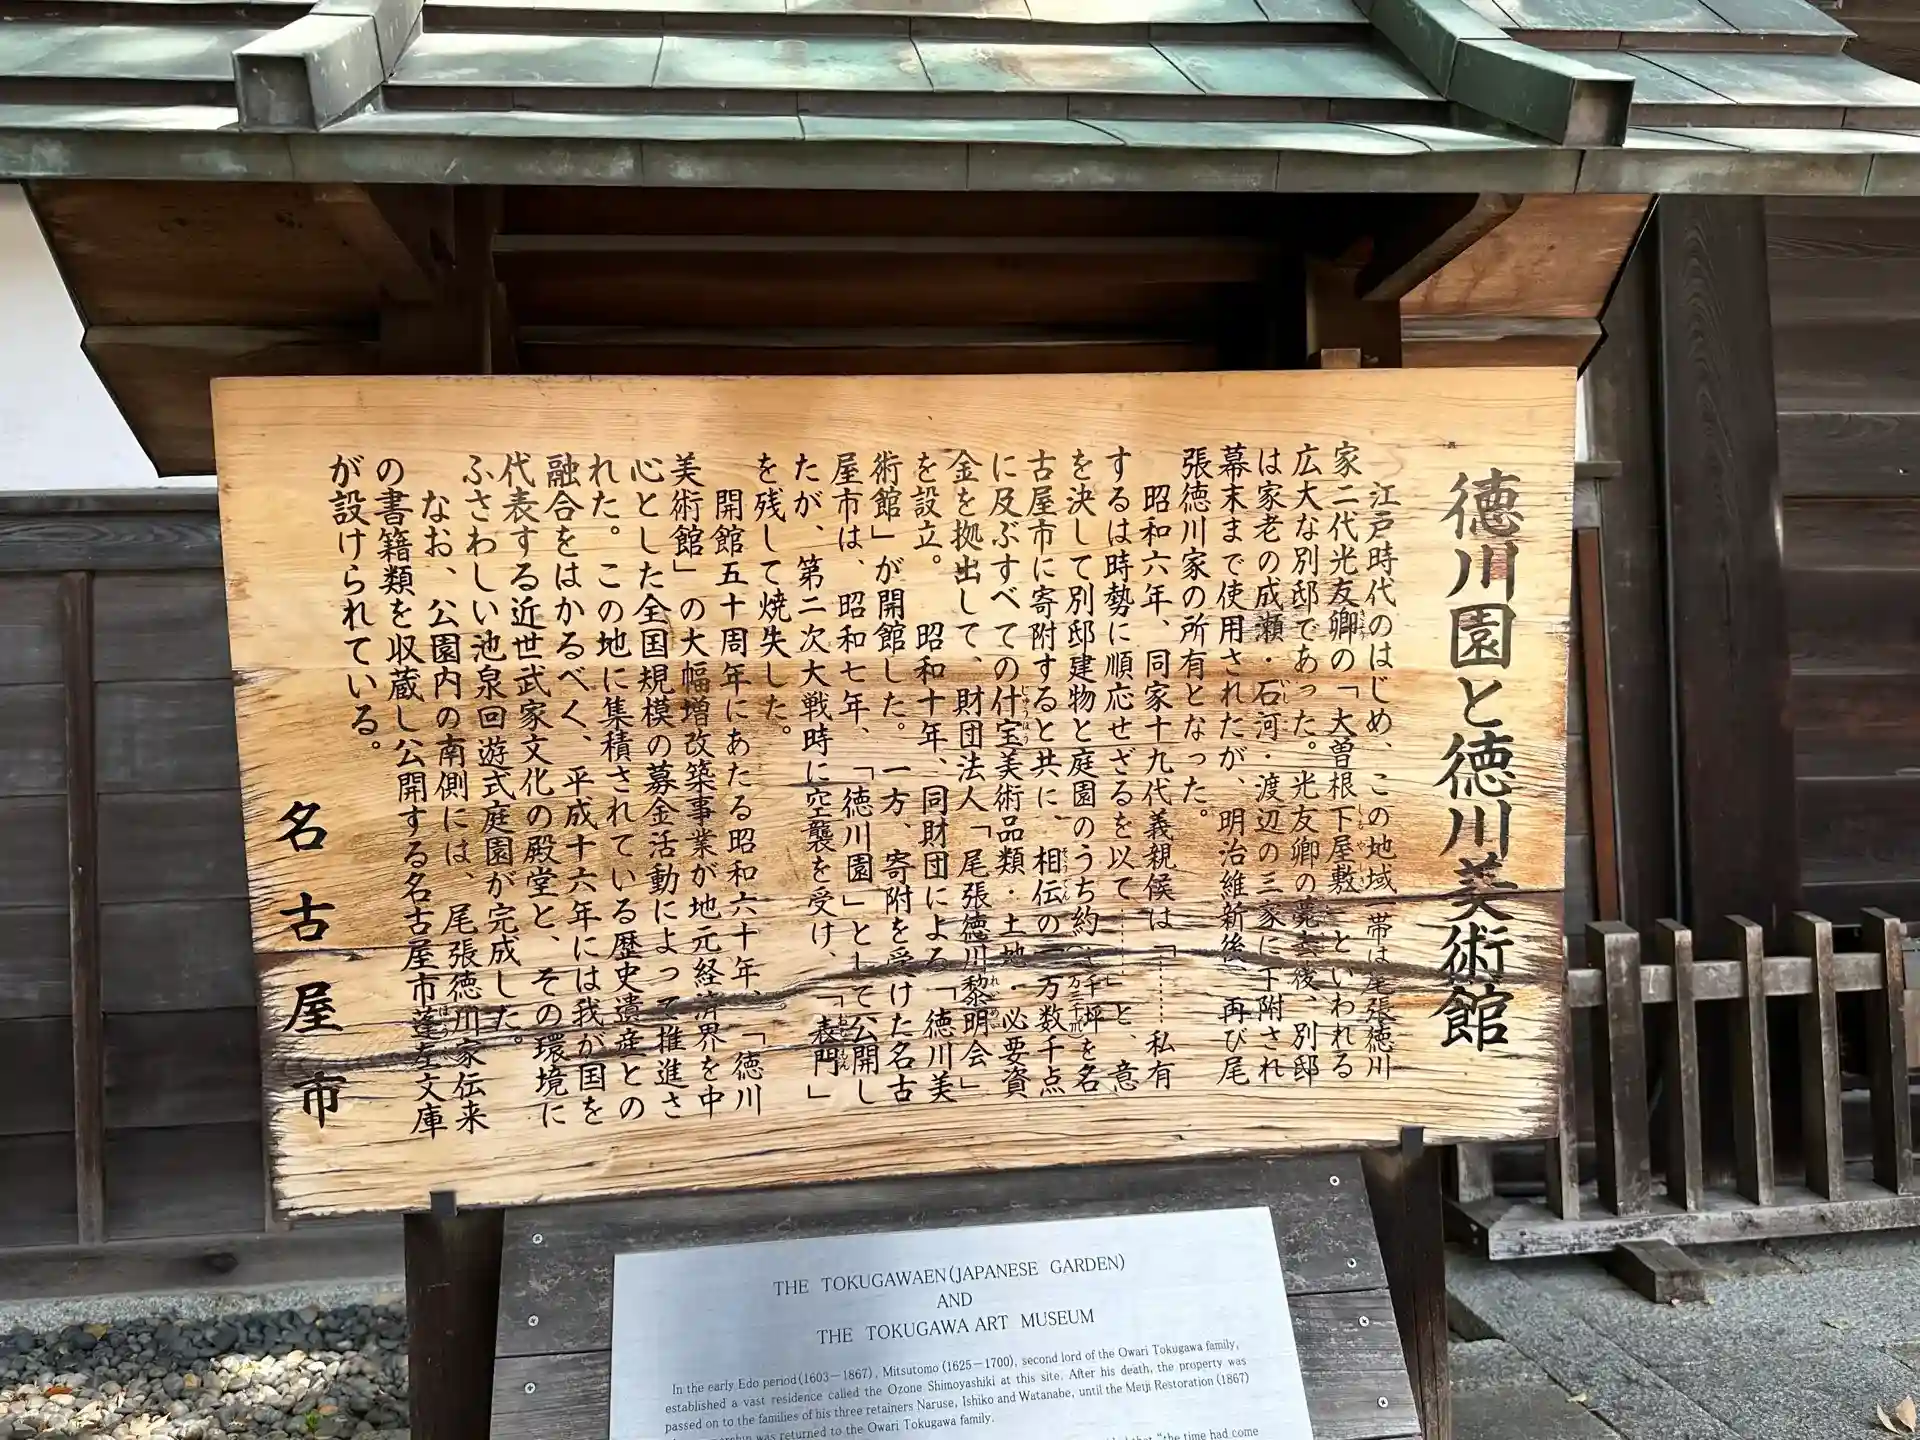 徳川園と徳川美術館
江戸時代のはじめ、この地域一帯は尾張徳川
家二代光友卿の「大曽根下屋敷」といわれる
広大な別邸であった。光友卿の薨去後、別邸
は家老の成瀬・石河・渡辺の三家に下附され
幕末まで使用されたが、明治維新後、再び尾
張徳川家の所有となった。
昭和六年、同家十九代義親候は「……私有
するは時勢に順応せざるを以て……」と、意
を決して別邸建物と庭園のうち約 千坪を名
古屋市に寄附すると共に、相伝の一万数千点
に及ぶすべての什宝美術品類・土地・必要資
金を拠出して、財団法人「尾張徳川黎明会」
を設立。昭和十年、同財団による「徳川美
術館」が開館した。一方、寄附を受けた名古
屋市は、昭和七年、「徳川園」として公開し
たが、第二次大戦時に空襲を受け、「表門」
を残して焼失した。
開館五十周年にあたる昭和六十年、「徳川
美術館」の大幅増改築事業が地元経済界を中
心とした全国規模の募金活動によって推進さ
れた。この地に集積されている歴史遺産との
融合をはかるべく、平成十六年には我が国を
代表する近世武家文化の殿堂と、その環境に
ふさわしい池泉回遊式庭園が完成した。
なお、公園内の南側には、尾張徳川家伝来
の書籍類を収蔵し公開する名古屋市蓬左文庫
が設けられている。
名古屋市
THE TOKUGAWAEN(JAPANESE GARDEN)
AND
THE TOKUGAWA ART MUSEUM
In the early Edo period(1603－1867), Mitsutomo(1625－1700), second lord of the Owari Tokugawa family,
established a vast residence called the Ozone Shimoyashiki at this site. After his death, the property was
passed on to the families of his three retainers Naruse, Ishiko and Watanabe, until the Meiji Restoration(1867)
was returned to the Owari Tokugawa family.
that "the time had come